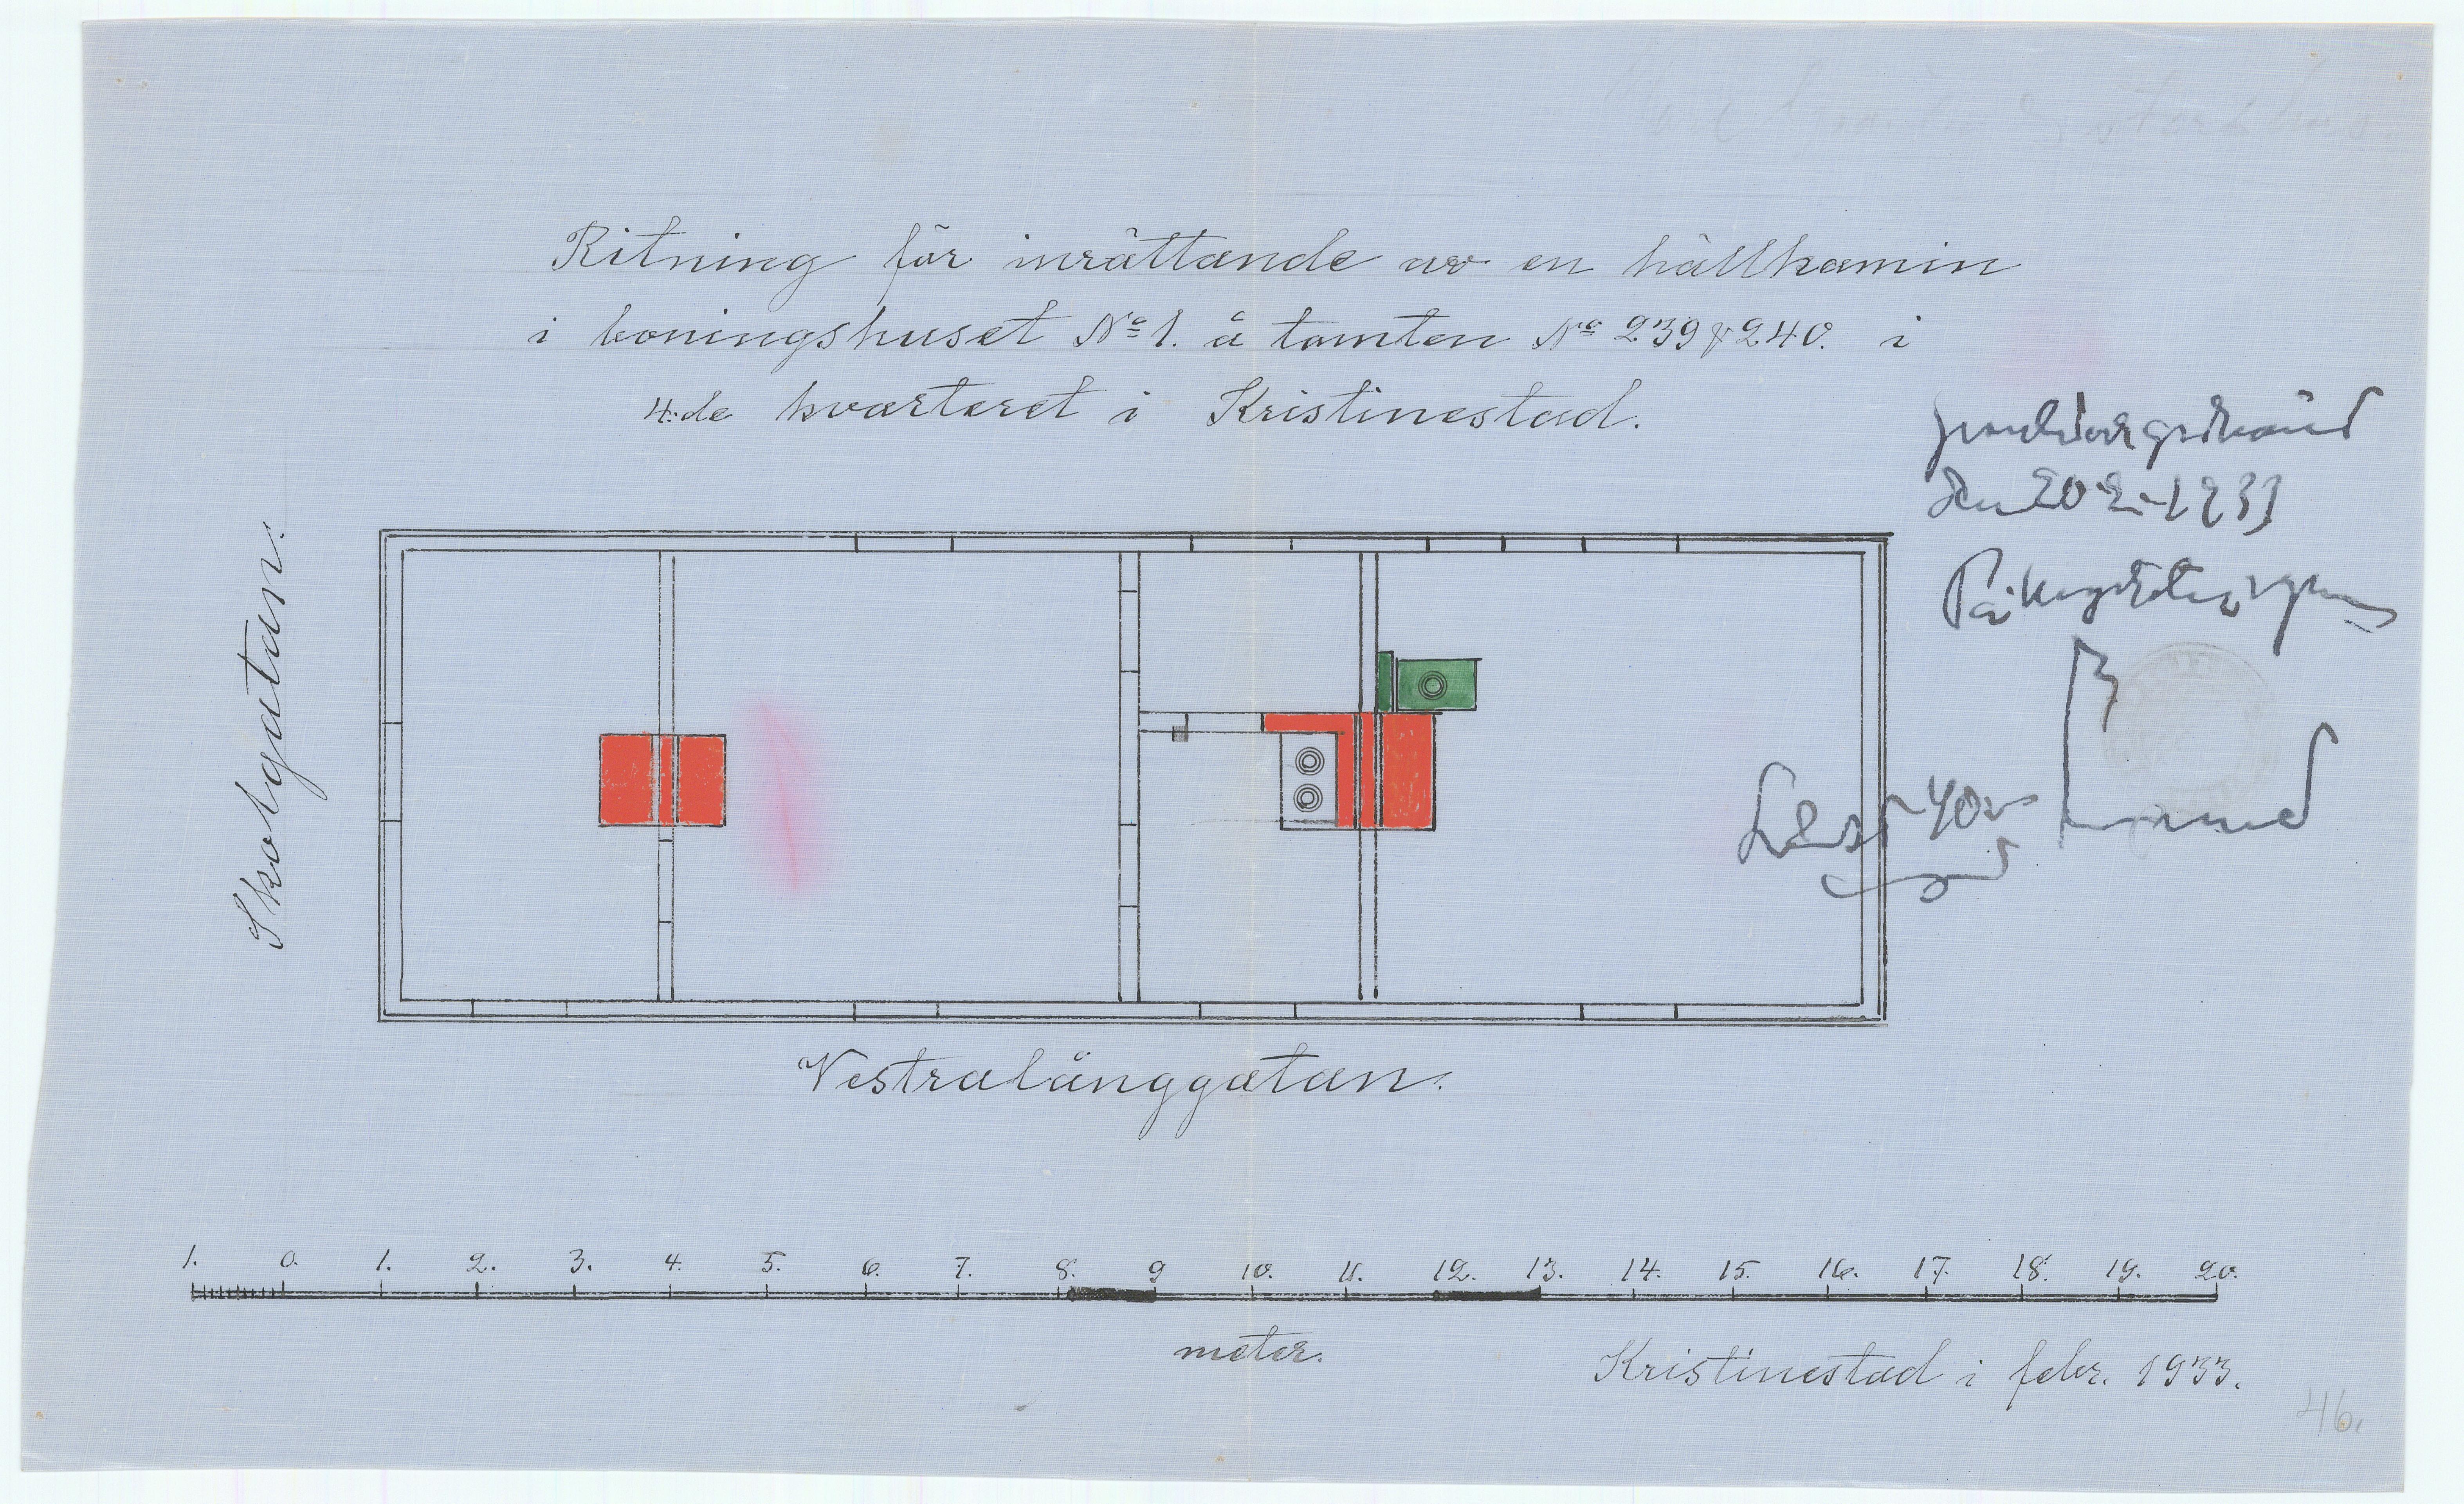 Ritning för inrättande av en hällkamin
i boningshuset No 1. å tomten No 239 & 240. i
4:de kvarteret i Kristinestad.
den 20-2-1933
Skolgatan.
Vestralånggatan.
1. 0. 1. 2. 3. 4. 5. 6. 7. 8. 9 10. 11. 12. 13. 14. 15. 16. 17. 18. 19. 20.
meter.
Kristinestad i febr. 1933.
46.